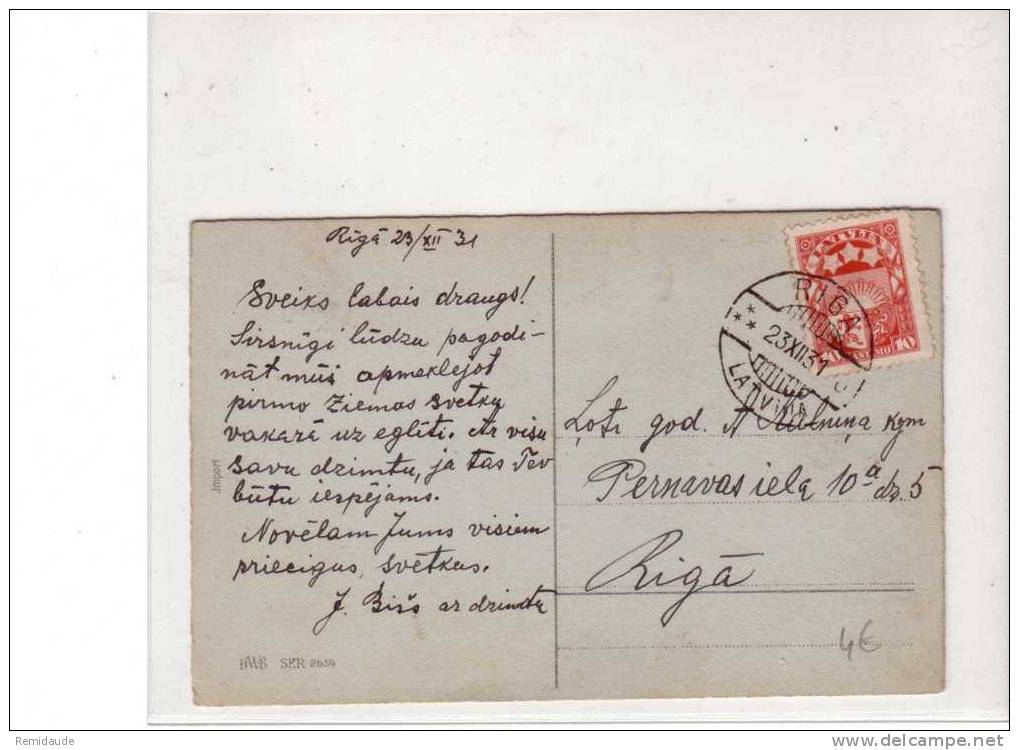 Rīgā 23/XII 31
Sveiks labais draugs!
Sirsnīgi lūdzu pagodi-
nāt mūs apmeklējot
pirmo Ziemas svētku
vakarā uz eglīti. Ar visu
savu dzimtu, ja tas Tev
būtu iespējams.
Novēlam Jums visiem
priecīgus svētkus.
J. Bišs ar dzimtu
Import
HWB SER 2659
LATVIJA
10
RIGA
23XII31
LATVIJA
Ļoti god. A Kalniņa kgm
Pernavas ielā 10a dz. 5
Rīgā
4€
Remidaude
www.delcampe.net